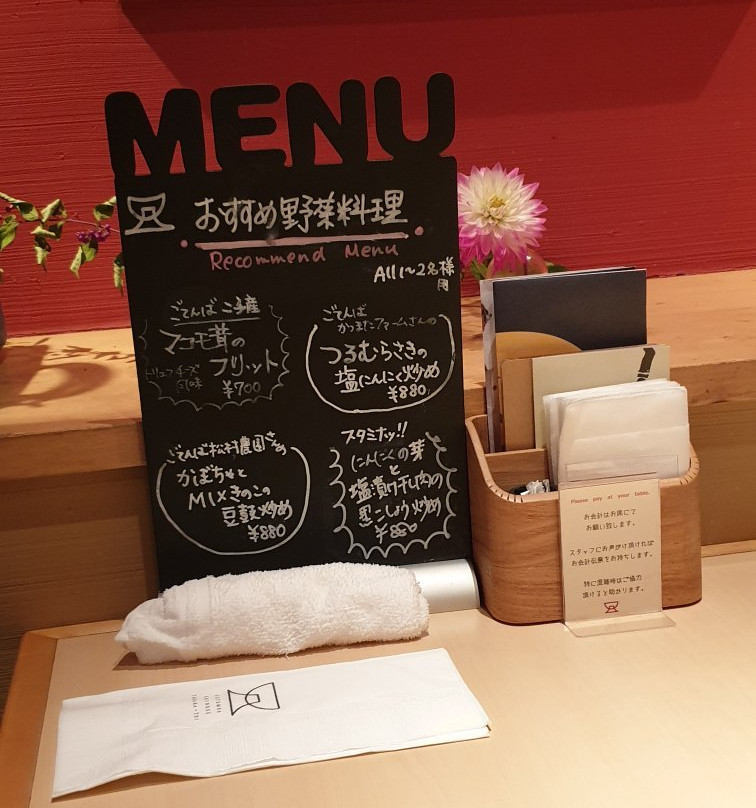 MENU
おすすめ野菜料理
Recommend Menu
All 1~2名様
用
ごてんば産
マコモ茸の
フリット
トリュフチーズ
風味
¥700
ごてんば
かつまたファームさんの
つるむらさきの
塩にんにく炒め
¥880
ごてんば松村農園さんの
かぼちゃと
MIXきのこの
豆鼓炒め
¥880
スタミナッ!!
にんにくの芽
と
塩漬け干し肉の
黒こしょう炒め
¥880
Please pay at your table.
お会計はお席にて
お願い致します。
スタッフにお声がけ頂ければ
お会計伝票をお持ちします。
特に混雑時はご協力
頂けると助かります。